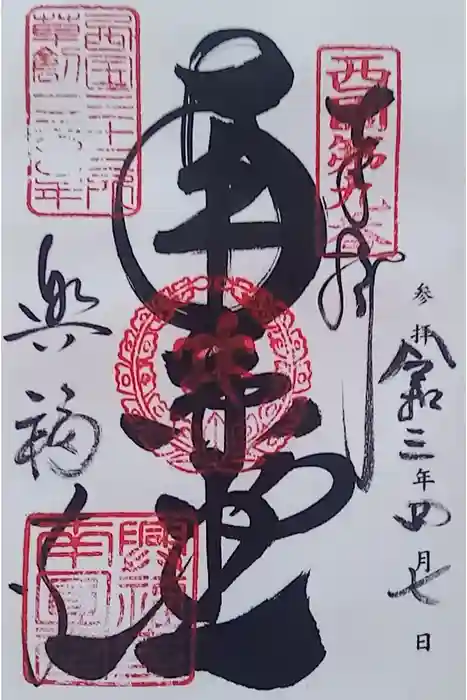 奉拝
参拝 令和三年四月七日
西国第九番
南円堂
西国三十三所
草創1300年
興福寺
興福寺
南円堂